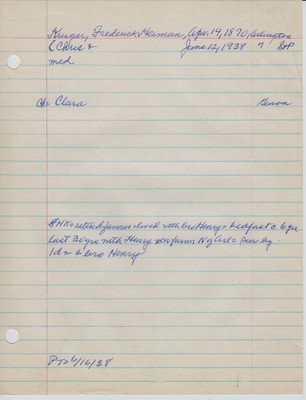 Kruger, Frederick Herman, Apr. 14, 1870, Arlington
(Chris & June 12, 1938 71 BxP
med
Ch: Clara Genoa
NK = retired farmer lived with bro Henry = bedfast c. 6 yrs
last 30 yrs with Henry on farm N of Arl =
Ida & bro Henry
6/16/38